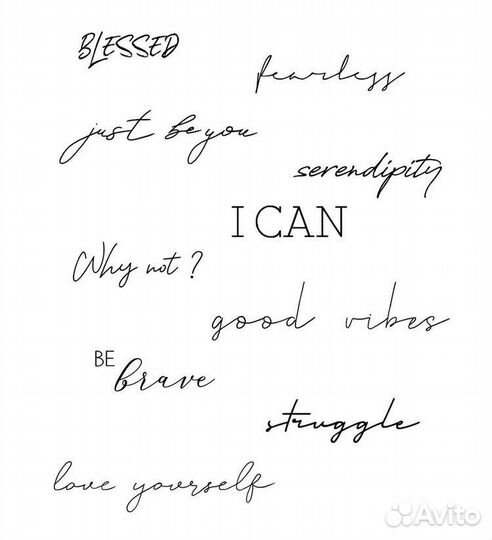 BLESSED
fearless
just be you
serendipity
I CAN
Why not ?
good vibes
BE
brave
struggle
love yourself
Avito